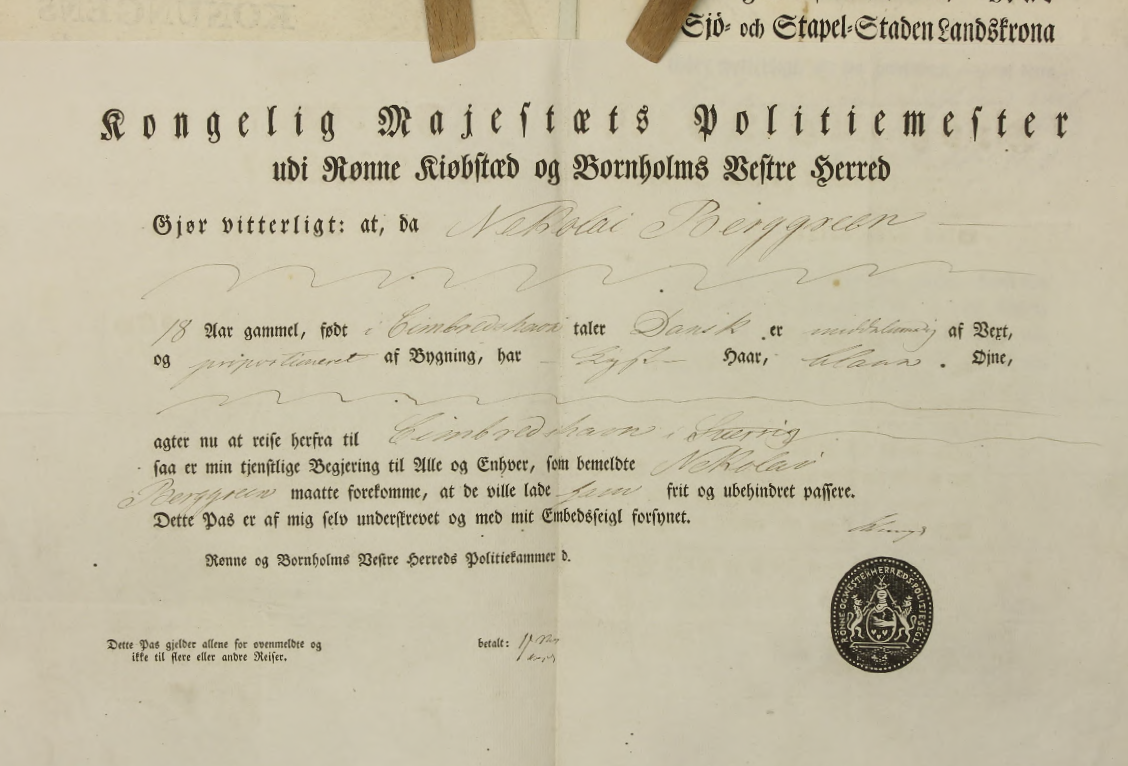 Sjö- och Stapel-Staden Landskrona
Kongelig Majestæts Politiemester
udi Rønne Kiøbstæd og Bornholms Vestre Herred
Gjør vitterligt: at, da Nekolai Berggreen
18 Aar gammel, født i Cimbredshavn taler Dansk er af Vext,
og propotioneret af Bygning, har Lyst Haar, blaae Øjne,
agter nu at reise herfra til Cimbredshavn i Sverrig
saa er min tjenstlige Begjering til Alle og Enhver, som bemeldte Nekolai
Berggreen maatte forekomme, at de ville lade ham frit og ubehindret passere.
Dette Pas er af mig selv underskrevet og med mit Embedsseigl forsynet.
Rønne og Bornholms Vestre Herreds Politiekammer d.
RØNNE OG WESTERHERREDS POLITIESEGL
Dette Pas gjelder allene for ovenmeldte og
ikke til flere eller andre Reiser.
betalt: